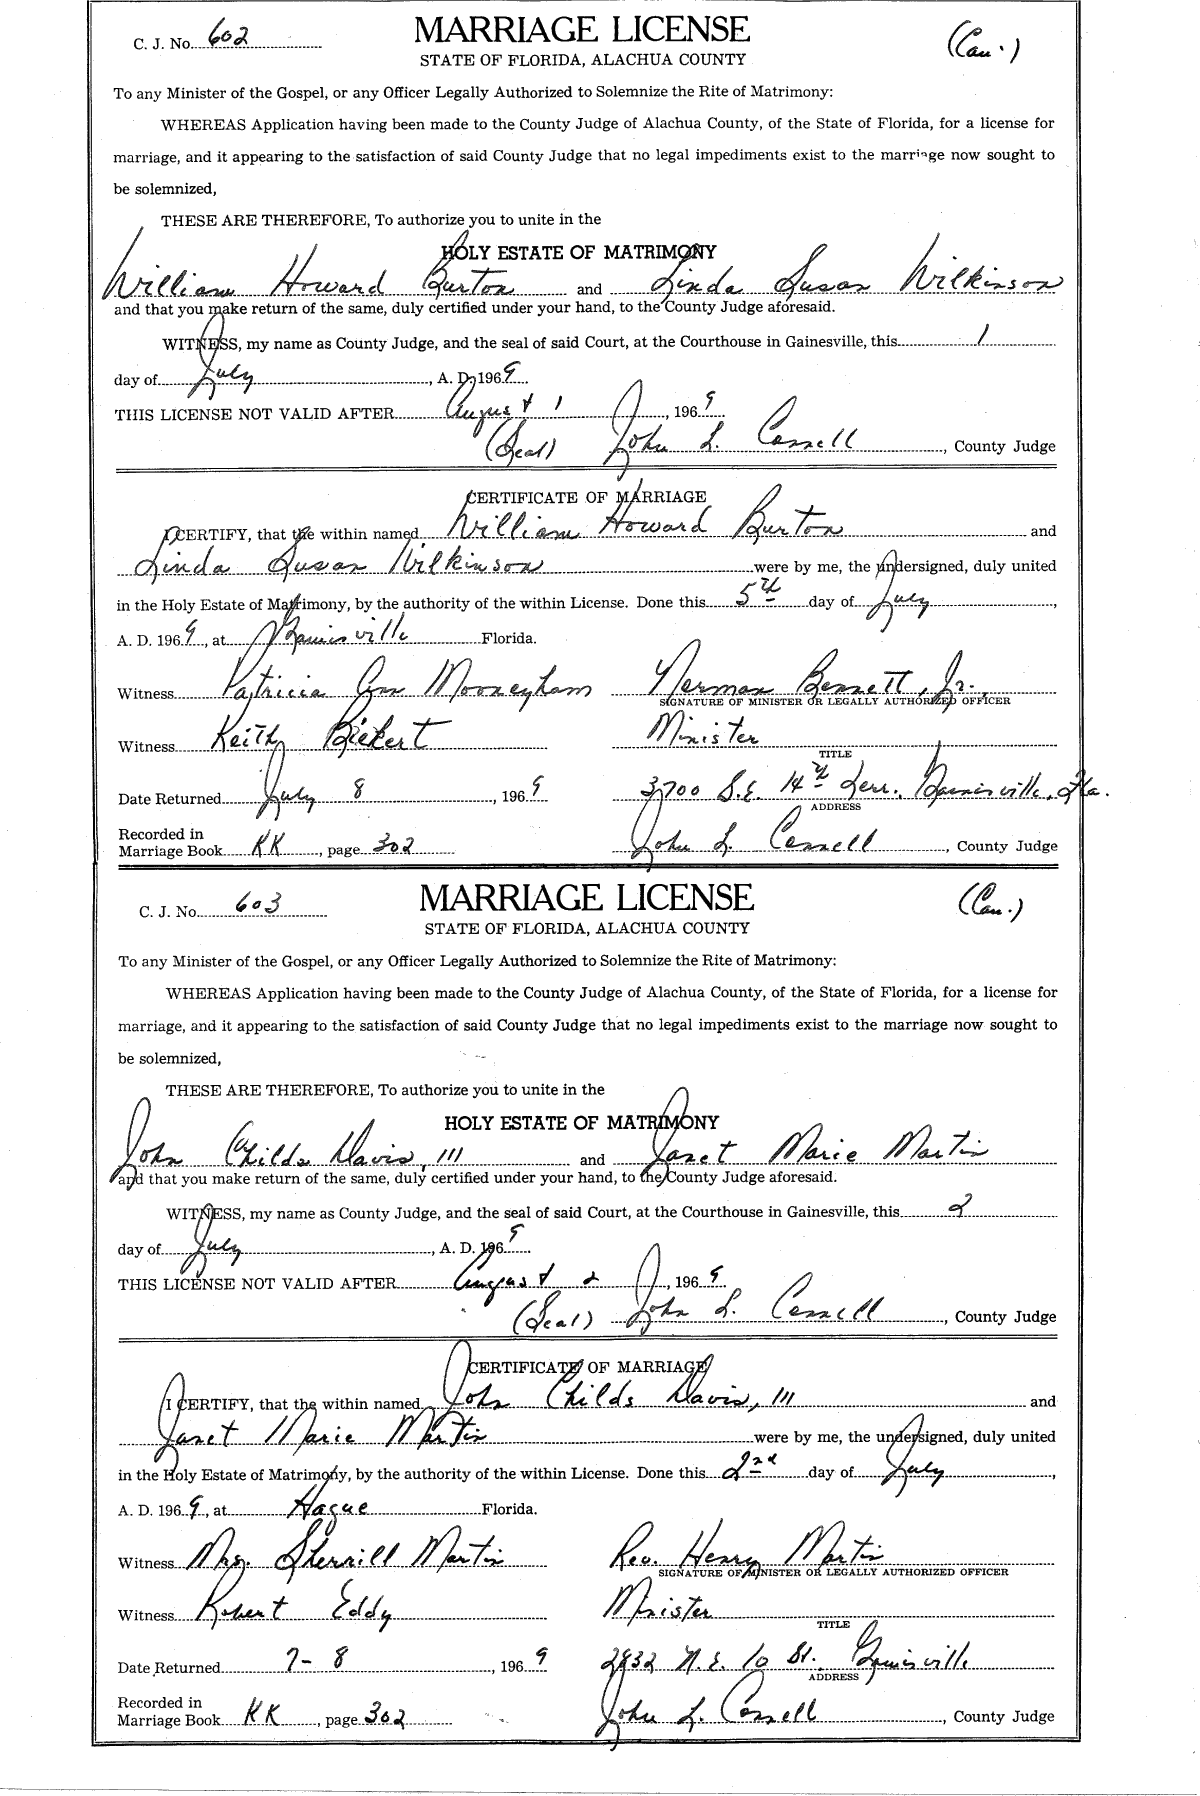 C. J. No. 602
MARRIAGE LICENSE
(Cau.)
STATE OF FLORIDA, ALACHUA COUNTY
To any Minister of the Gospel, or any Officer Legally Authorized to Solemnize the Rite of Matrimony:
WHEREAS Application having been made to the County Judge of Alachua County, of the State of Florida, for a license for
marriage, and it appearing to the satisfaction of said County Judge that no legal impediments exist to the marriage now sought to
be solemnized,
THESE ARE THEREFORE, To authorize you to unite in the
HOLY ESTATE OF MATRIMONY
William Howard Burton and Linda Susan Wilkinson
and that you make return of the same, duly certified under your hand, to the County Judge aforesaid.
WITNESS, my name as County Judge, and the seal of said Court, at the Courthouse in Gainesville, this 1
day of July, A. D. 1969
THIS LICENSE NOT VALID AFTER August 1, 1969
(Seal) John L. Connell, County Judge
CERTIFICATE OF MARRIAGE
I CERTIFY, that the within named William Howard Burton and
Linda Susan Wilkinson were by me, the undersigned, duly united
in the Holy Estate of Matrimony, by the authority of the within License. Done this 5th day of July,
A. D. 1969, at Gainesville Florida.
Witness Patricia Ann Mooneyham Norman Bennett, Jr.
SIGNATURE OF MINISTER OR LEGALLY AUTHORIZED OFFICER
Witness Keith Bickert Minister
TITLE
Date Returned July 8, 1969 3700 S.E. 14th Terr., Gainesville, Fla.
ADDRESS
Recorded in
Marriage Book KK, page 302 John L. Connell, County Judge
C. J. No. 603
MARRIAGE LICENSE
(Cau.)
STATE OF FLORIDA, ALACHUA COUNTY
To any Minister of the Gospel, or any Officer Legally Authorized to Solemnize the Rite of Matrimony:
WHEREAS Application having been made to the County Judge of Alachua County, of the State of Florida, for a license for
marriage, and it appearing to the satisfaction of said County Judge that no legal impediments exist to the marriage now sought to
be solemnized,
THESE ARE THEREFORE, To authorize you to unite in the
HOLY ESTATE OF MATRIMONY
John Childs Davis, III and Janet Marie Martin
and that you make return of the same, duly certified under your hand, to the County Judge aforesaid.
WITNESS, my name as County Judge, and the seal of said Court, at the Courthouse in Gainesville, this 2
day of July, A. D. 1969
THIS LICENSE NOT VALID AFTER August 2, 1969
(Seal) John L. Connell, County Judge
CERTIFICATE OF MARRIAGE
I CERTIFY, that the within named John Childs Davis, III and
Janet Marie Martin were by me, the undersigned, duly united
in the Holy Estate of Matrimony, by the authority of the within License. Done this 2nd day of July,
A. D. 1969, at Hague Florida.
Witness Mrs. Sherrill Martin Rev. Henry Martin
SIGNATURE OF MINISTER OR LEGALLY AUTHORIZED OFFICER
Witness Robert Eddy Minister
TITLE
Date Returned 7-8, 1969 2832 N.E. 10 St. Gainesville
ADDRESS
Recorded in
Marriage Book KK, page 302 John L. Connell, County Judge